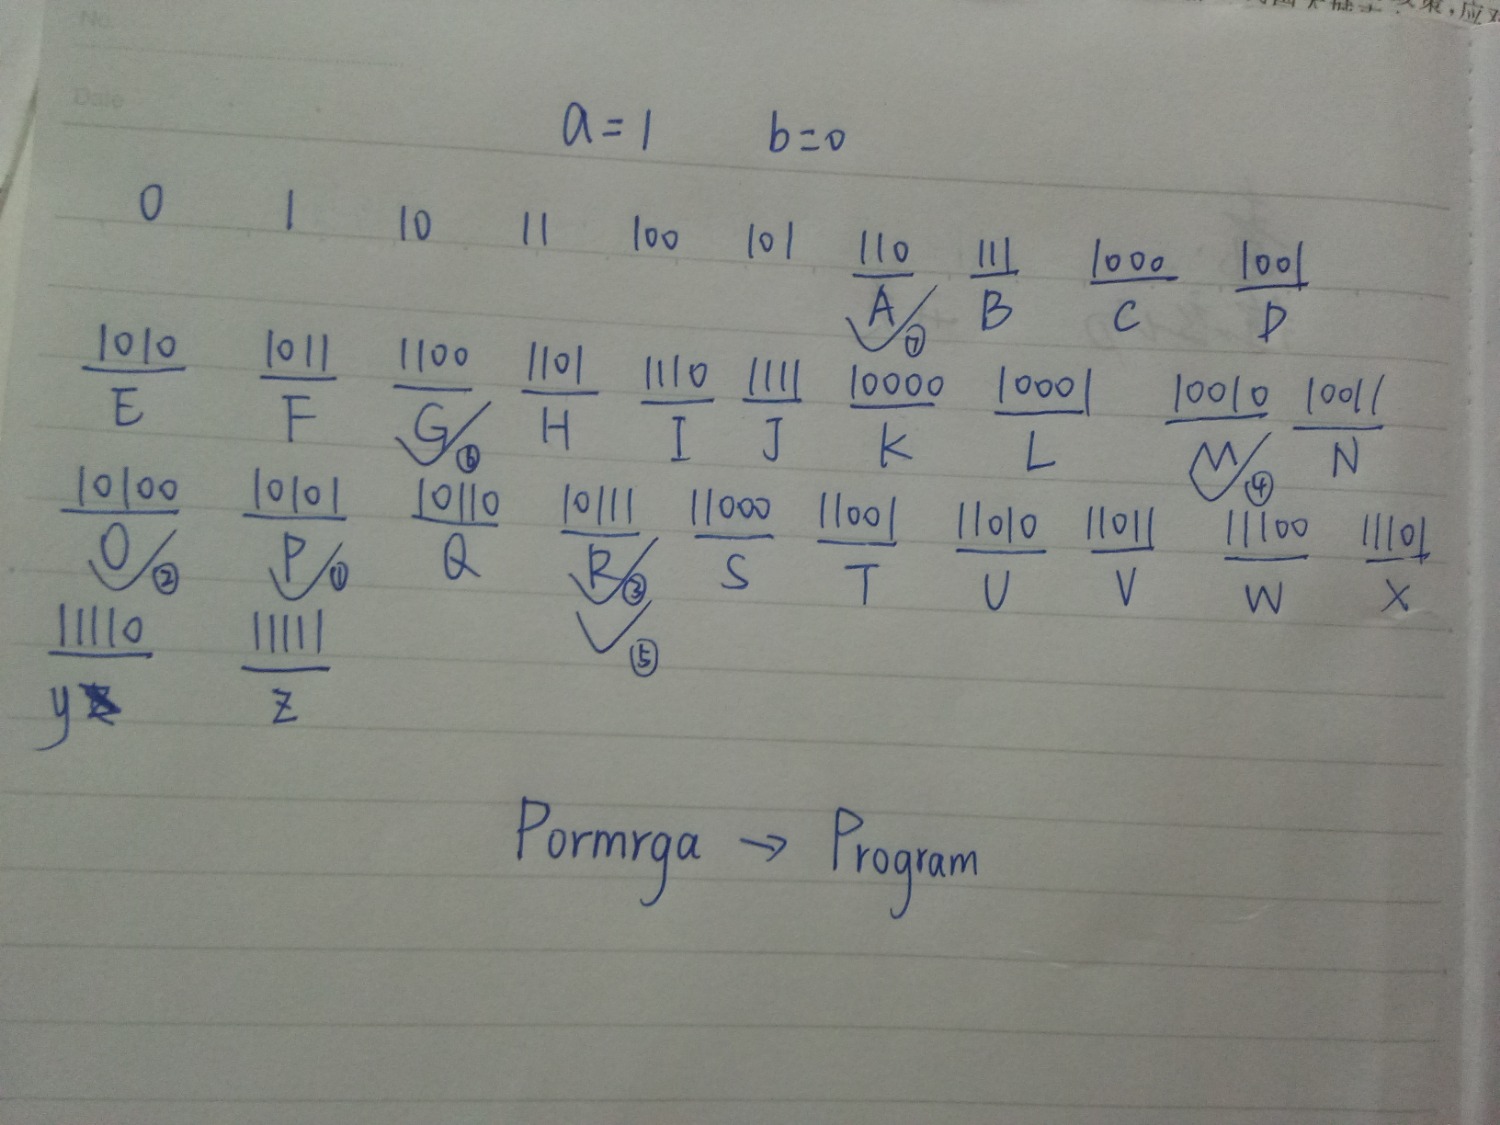 束,应对
No.
Date
a=1 b=0
0 1 10 11 100 101 110 111 1000 1001
A B C D
⑦
1010 1011 1100 1101 1110 1111 10000 10001 10010 10011
E F G H I J K L M N
⑥ ④
10100 10101 10110 10111 11000 11001 11010 11011 11100 11101
O P Q R S T U V W X
② ① ③
11110 11111
⑤
y z
Pormrga → Program